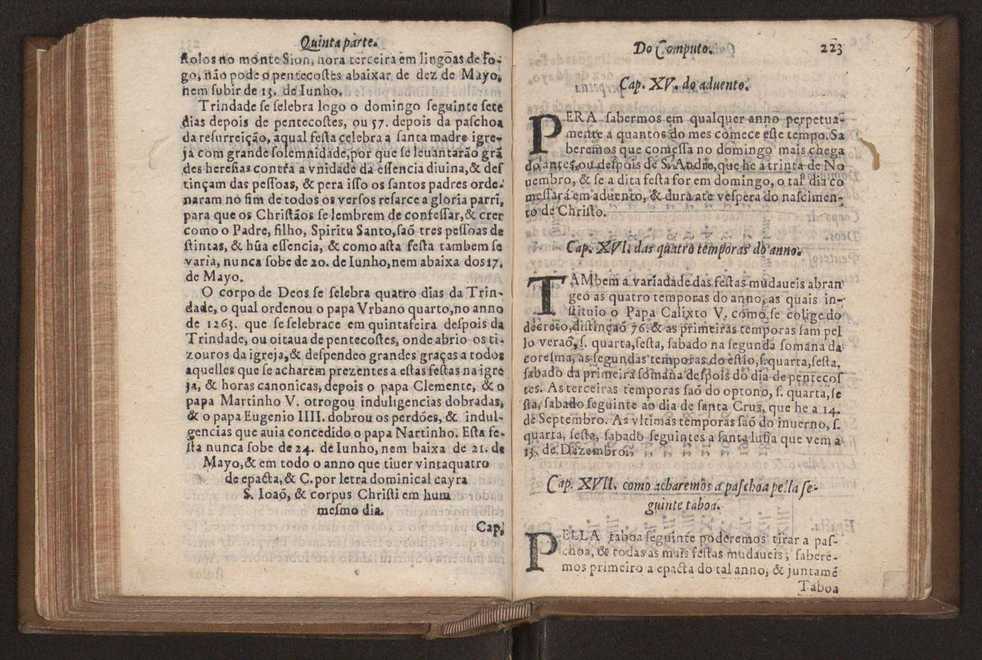 Quinta parte.
ſtolos no monte Sion, hora terceira em lingoas de fo-
go, não pode o pentecoſtes abaixar de dez de Mayo,
nem ſubir de 13. de Iunho.
Trindade ſe ſelebra logo o domingo ſeguinte ſete
dias depois de pentecoſtes, ou 57. depois da paſchoa
da reſurreição, a qual feſta celebra a ſanta madre igre-
ja com grande ſolemnidade, por que ſe leuantarão grã
des hereſias contra a vnidade da eſſencia diuina, & deſ
tinçam das peſſoas, & pera iſſo os ſantos padres orde-
naram no fim de todos os verſos reſarce a gloria parri,
para que os Chriſtãos ſe lembrem de confeſſar, & crer
como o Padre, filho, Spiritu Santo, ſaõ tres peſſoas de
ſtintas, & hũa eſſencia, & como aſta feſta tambem ſe
varia, nunca ſobe de 20. de Iunho, nem abaixa dos 17.
de Mayo.
O corpo de Deos ſe ſelebra quatro dias da Trin-
dade, o qual ordenou o papa Vrbano quarto, no anno
de 1263. que ſe ſelebrace em quintafeira deſpois da
Trindade, ou oitaua de pentecoſtes, onde abrio os ti-
zouros da igreja, & deſpendeo grandes graças a todos
aquelles que ſe acharem prezentes a eſtas feſtas na igre
ja, & horas canonicas, depois o papa Clemente, & o
papa Martinho V. otrogou indulgencias dobradas,
& o papa Eugenio IIII. dobrou os perdões, & indul-
gencias que auia concedido o papa Nartinho. Eſta fe-
ſta nunca ſobe de 24. de Iunho, nem baixa de 21. de
Mayo, & em todo o anno que tiuer vinta quatro
de epacta, & C. por letra dominical cayra
S. Ioaõ, & corpus Chriſti em hum
meſmo dia.
Cap.
Do Computo. 223
Cap. XV. do aduento.
PERA ſabermos em qualquer anno perpetua-
mente a quantos do mes comece eſte tempo. Sa
beremos que comeſſa no domingo mais chega
do antes, ou deſpois de S. Andre, que he a trinta de No
uembro, & ſe a dita feſta for em domingo, o tal dia co
meſſará em aduento, & dura ate veſpera do naſcimen-
to de Chriſto.
Cap. XVI. das quatro temporas do anno.
TAMbem a variadade das feſtas mudaueis abran
geo as quatro temporas do anno, as quais in-
ſtituio o Papa Calixto V. como ſe colige do
decreto, diſtinçaõ 76. & as primeiras temporas ſam pel
lo veraõ, ſ. quarta, ſeſta, ſabado na ſegunda ſomana da
coreſma, as ſegundas temporas do eſtio, ſ. quarta, ſeſta,
ſabado da primeira ſomana deſpois do dia de pentecoſ
tes. As terceiras temporas ſaõ do optono, ſ. quarta, ſe
ſta, ſabado ſeguinte ao dia de ſanta Cruz, que he a 14.
de Septembro. As vltimas temporas ſaõ do inuerno, ſ.
quarta, ſeſta, ſabado ſeguintes a ſanta luſſa que vem a
13. de Dazembro.
Cap. XVII. como acharemos a paſchoa pella ſe-
guinte taboa.
PELLA taboa ſeguinte poderemos tirar a paſ-
choa, & todas as mais feſtas mudaueis, ſabere-
mos primeiro a epacta do tal anno, & juntamẽ
Taboa